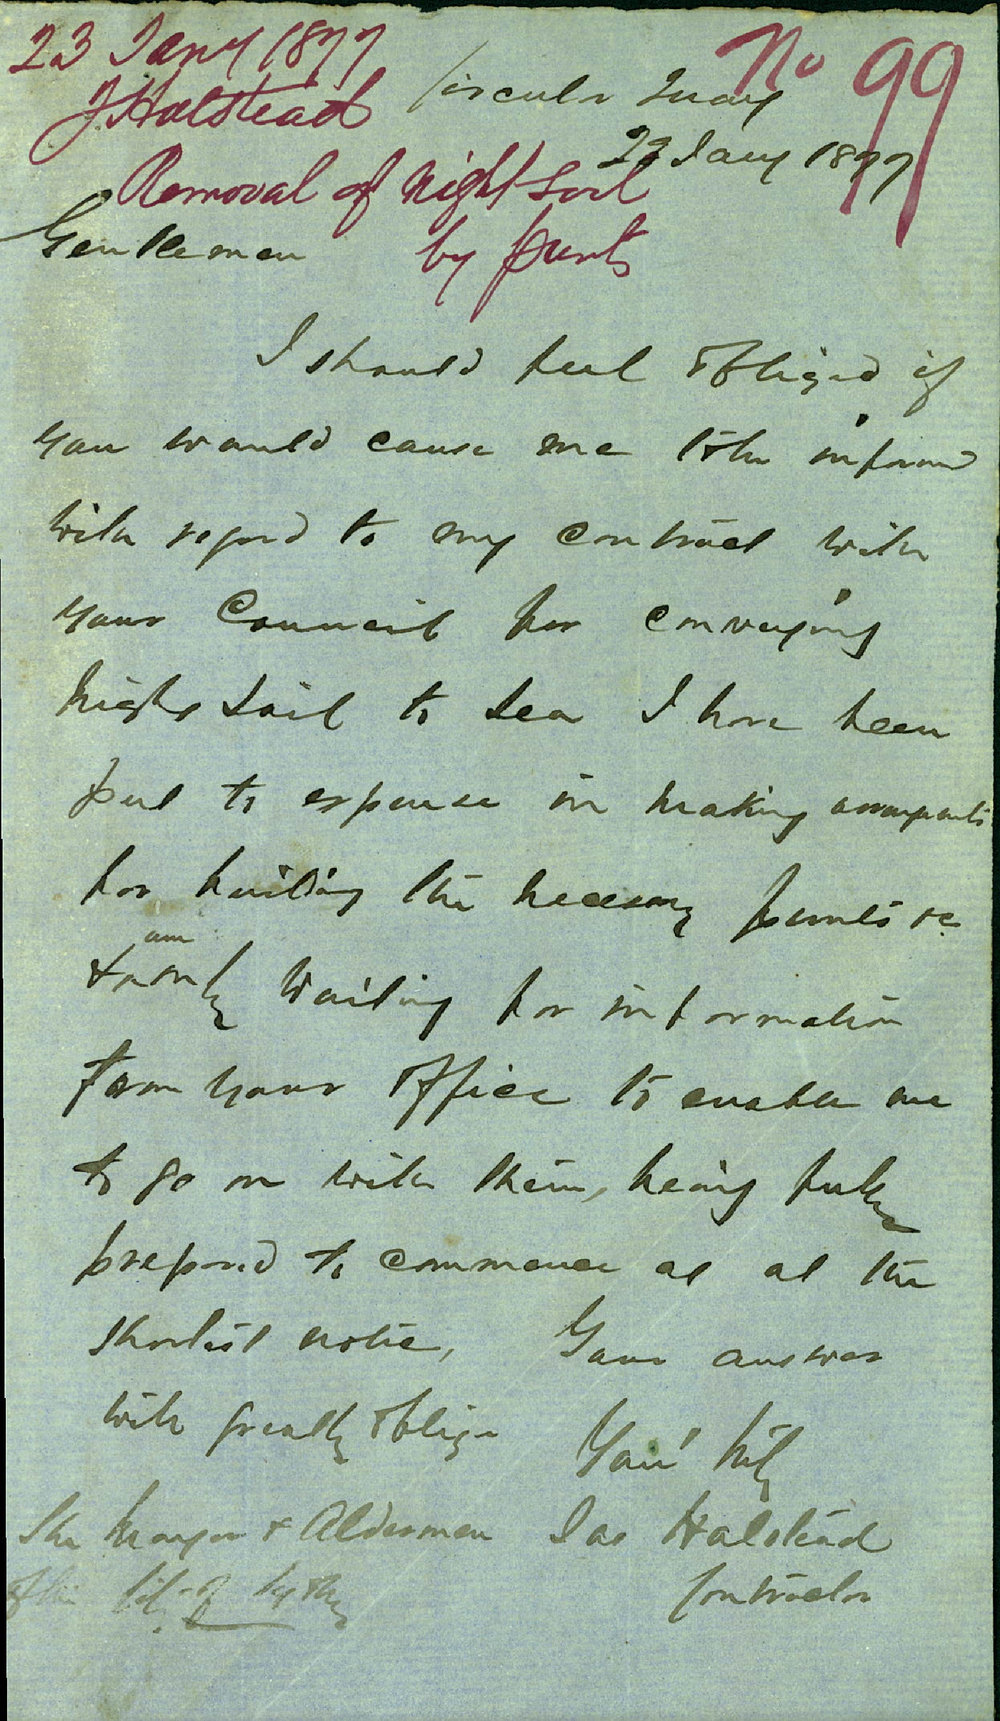 23 Jany 1877
No 99
J Halstead
Circular Quay
Removal of Night Soil
by punts
22 Jany 1877
Gentlemen
I should feel obliged if
you would cause me to be informed
with regard to my contract with
your Council for conveying
night soil to sea I have been
put to expense in making
for building the necessary punts &c
& am only waiting for information
from your Office to enable me
to go on with them, being fully
prepared to commence at at the
shortest notice, Your answer
will greatly oblige
Your' tly
The Mayor & Aldermen
of the City of Sydney
Jas Halstead
Contractor